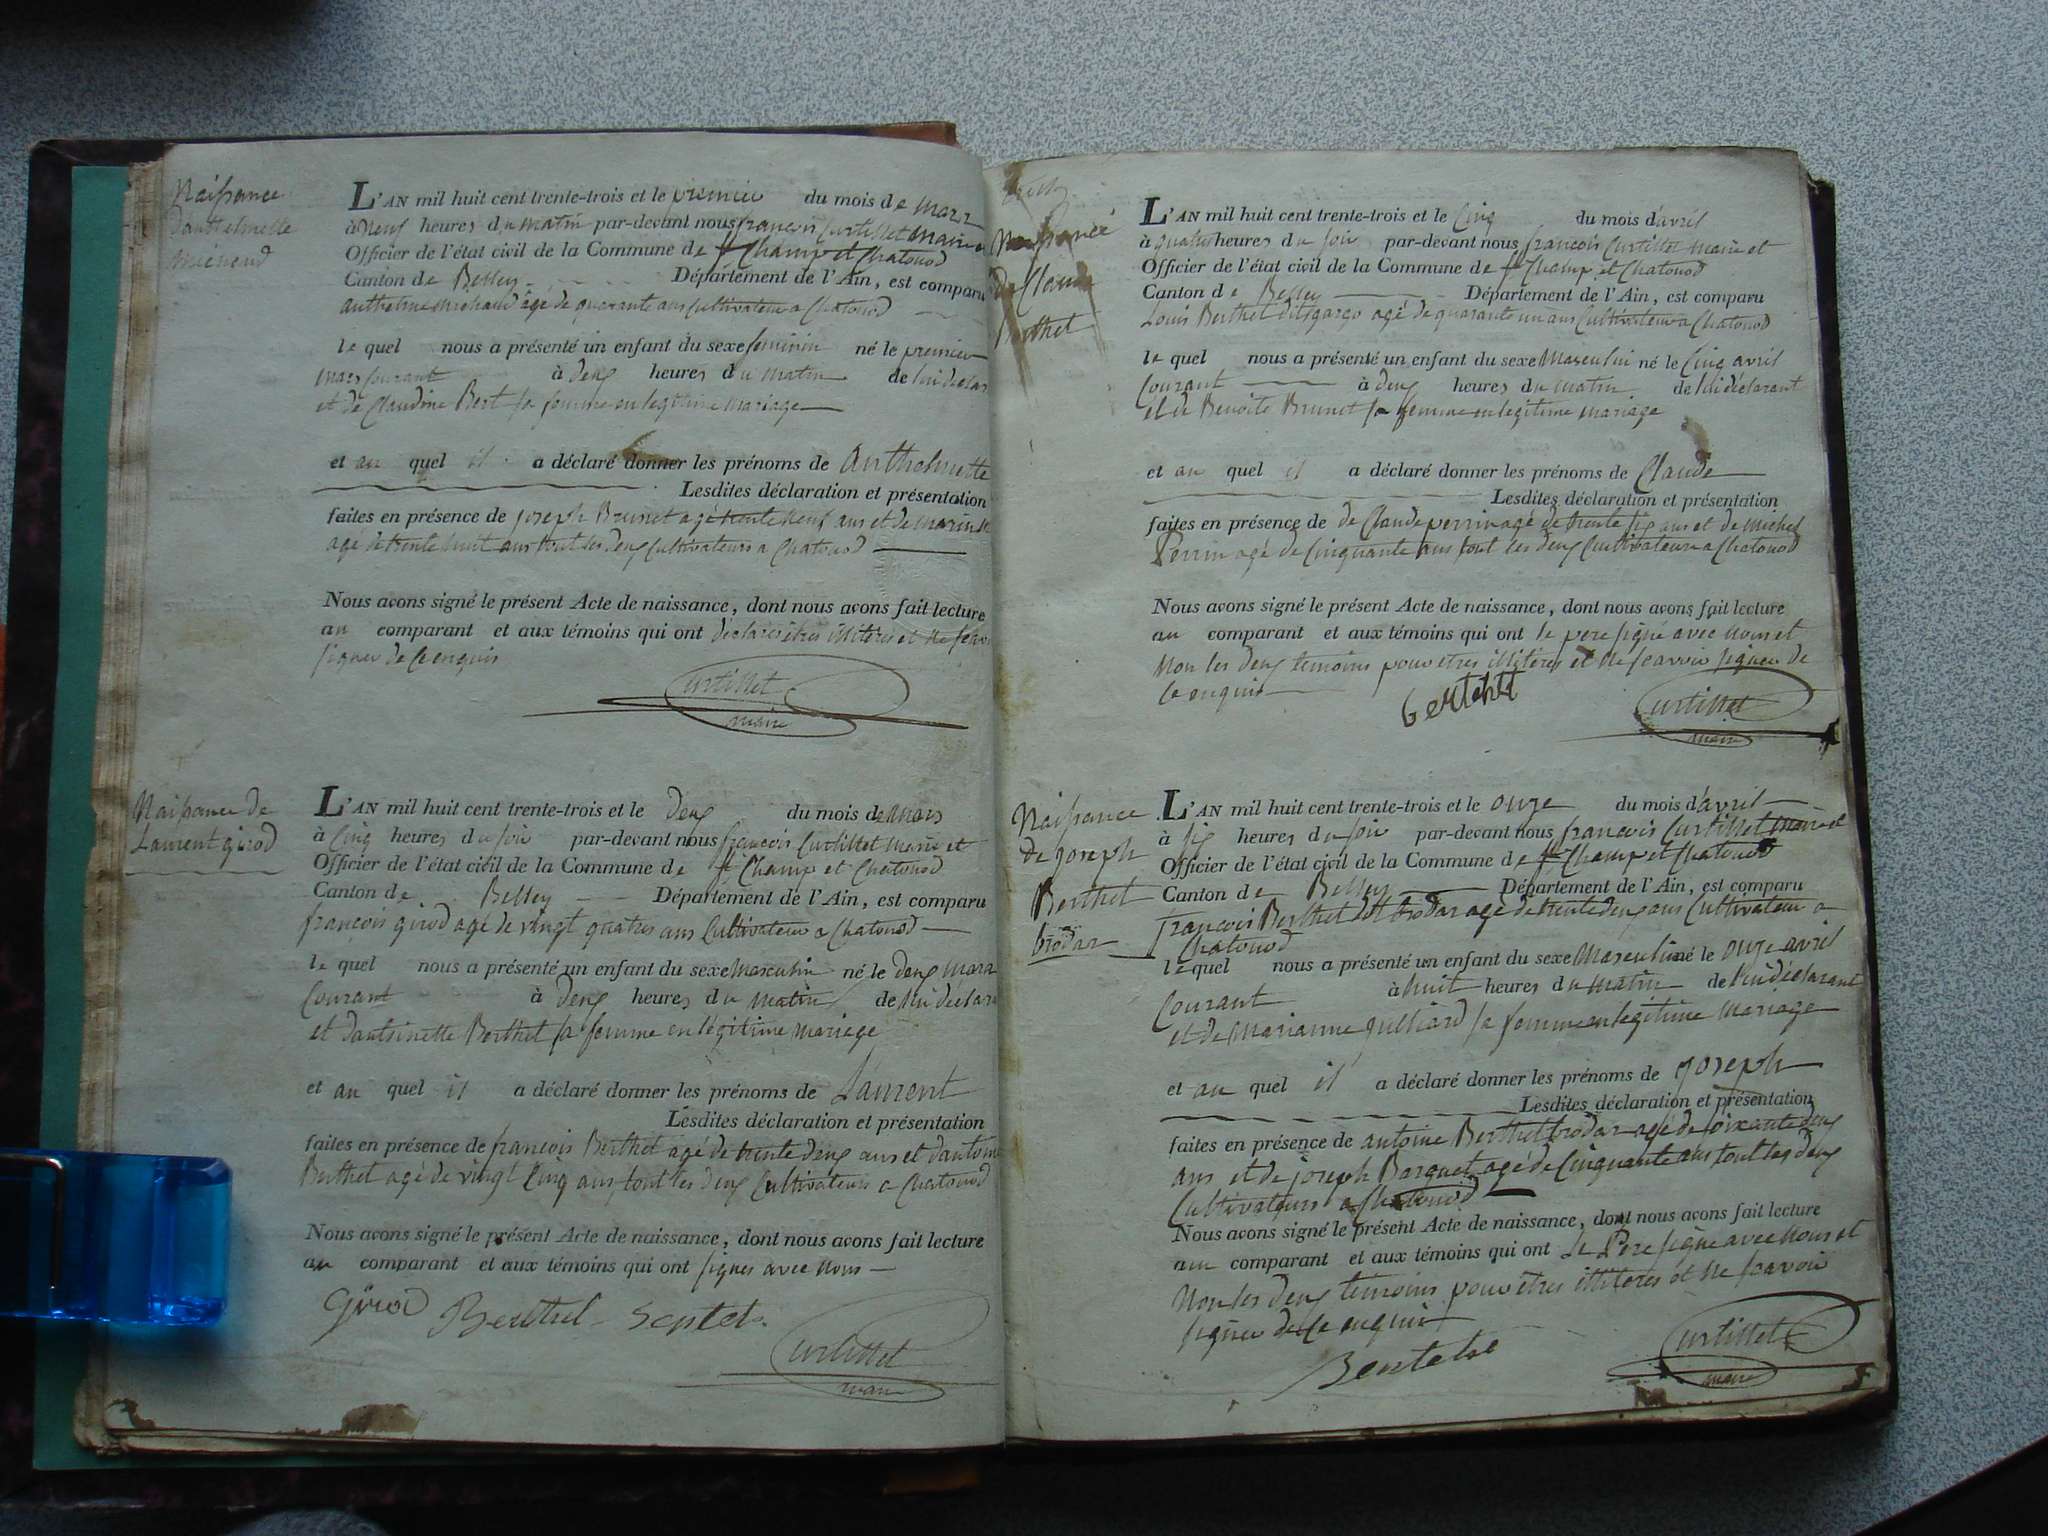 Naissance
danthelmette
michaud
L'AN mil huit cent trente-trois et le premier du mois de mars
à neuf heures du matin par-devant nous françois Curtillet Maire
Officier de l'état civil de la Commune de st Champ et Chatonod
Canton de Belley Département de l'Ain, est comparu
anthelme michaud âgé de quarante ans Cultivateur a Chatonod
le quel nous a présenté un enfant du sexe feminin né le premier
mars Courant à deux heures du matin de lui déclar
et de Claudine Bert sa femme en legitime mariage
et au quel il a déclaré donner les prénoms de anthelmette
Lesdites déclaration et présentation
faites en présence de joseph Brunet agé trente neuf ans et de marin
agé de trente huit ans tout les deux Cultivateurs a Chatonod
Nous avons signé le présent Acte de naissance, dont nous avons fait lecture
au comparant et aux témoins qui ont déclarés êtres illitéres et ne scavoir
signer de Ce enquis
Curtillet
maire
Naissance de
Laurent girod
L'AN mil huit cent trente-trois et le deux du mois de mars
à Cinq heures du soir par-devant nous françois Curtillet Maire et
Officier de l'état civil de la Commune de st Champ et Chatonod
Canton de Belley Département de l'Ain, est comparu
françois girod agé de vingt quatres ans Cultivateur a Chatonod
le quel nous a présenté un enfant du sexe masculin né le deux mars
Courant à deux heures du matin de lui déclara
et dantoinette Berthet sa femme en légitime mariage
et au quel il a déclaré donner les prénoms de Laurent
Lesdites déclaration et présentation
faites en présence de françois Berthet agé de trente deux ans et dantoine
Berthet agé de vingt Cinq ans, tout les deux Cultivateurs a Chatonod
Nous avons signé le présent Acte de naissance, dont nous avons fait lecture
au comparant et aux témoins qui ont signés avec nous
Girod Berthet
Curtillet
maire
Naissance
de Claude
Berthet
L'AN mil huit cent trente-trois et le Cinq du mois d'avril
à quatre heures du soir par-devant nous françois Curtillet maire et
Officier de l'état civil de la Commune de st Champ et Chatonod
Canton de Belley Département de l'Ain, est comparu
Louis Berthet dit garço agé de quarante un ans Cultivateur a Chatonod
le quel nous a présenté un enfant du sexe Masculin né le Cinq avril
Courant à deux heures du matin de lui déclarant
et de Benoite Brunet sa femme en legitime mariage
et au quel il a déclaré donner les prénoms de Claude
Lesdites déclaration et présentation
faites en présence de de Claude perrin agé de trente six ans et de michel
Perrin agé de Cinquante ans tout les deux Cultivateurs a Chatonod
Nous avons signé le présent Acte de naissance, dont nous avons fait lecture
au comparant et aux témoins qui ont le pere signé avec nous et
Non les deux temoins pour etres illitéres et ne scavoir signer de
Ce enquis
Curtillet
maire
Naissance
de joseph
Berthet
brodar
L'AN mil huit cent trente-trois et le onze du mois d'avril
à six heures du soir par-devant nous françois Curtillet maire et
Officier de l'état civil de la Commune de st Champ et Chatonod
Canton de Belley Département de l'Ain, est comparu
françois Berthet dit brodar agé de trente deux ans Cultivateur a
Chatonod
le quel nous a présenté un enfant du sexe Masculin né le onze avril
Courant à huit heures du matin de lui déclarant
et de Marianne julliard sa femme en legitime mariage
et au quel il a déclaré donner les prénoms de joseph
Lesdites déclaration et présentation
faites en présence de antoine Berthet brodar agé de soixante deux
ans et de joseph Barquet agé de Cinquante ans tout les deux
Cultivateurs a Chatonod
Nous avons signé le présent Acte de naissance, dont nous avons fait lecture
au comparant et aux témoins qui ont le Pere signé avec nous et
Non les deux temoins pour etres illiteres et ne scavoir
signer de Ce enquis
Curtillet
maire